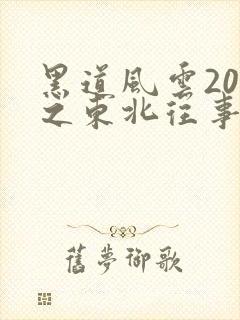 黑道風雲20
之東北往事
舊夢御歌